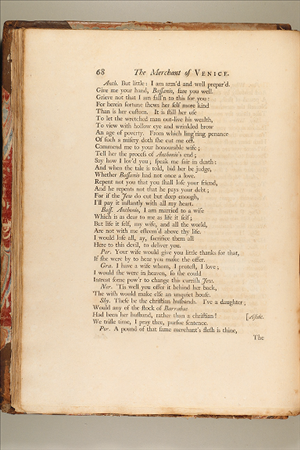 68 The Merchant of VENICE.
Anth. But little: I am arm'd and well prepar'd.
Give me your hand, Bassanio, fare you well.
Grieve not that I am fall'n to this for you:
For herein fortune shews her self more kind
Than is her custom. It is still her use
To let the wretched man out-live his wealth,
To view with hollow eye and wrinkled brow
An age of poverty. From which ling'ring penance
Of such a misery doth she cut me off.
Commend me to your honourable wife;
Tell her the process of Anthonio's end;
Say how I lov'd you; speak me fair in death:
And when the tale is told, bid her be judge,
Whether Bassanio had not once a love.
Repent not you that you shall lose your friend,
And he repents not that he pays your debt;
For if the Jew do cut but deep enough,
I'll pay it instantly with all my heart.
Bass. Anthonio, I am married to a wife
Which is as dear to me as life it self;
But life it self, my wife, and all the world,
Are not with me esteem'd above thy life.
I would lose all, ay, sacrifice them all
Here to this devil, to deliver you.
Por. Your wife would give you little thanks for that,
If she were by to hear you make the offer.
Gra. I have a wife whom, I protest, I love;
I would she were in heaven, so she could
Intreat some pow'r to change this currish Jew.
Ner. 'Tis well you offer it behind her back,
The wish would make else an unquiet house.
Shy. These be the christian husbands. I've a daughter;
Would any of the stock of Barrabas
Had been her husband, rather than a christian! [Aside.
We trifle time, I pray thee, pursue sentence.
Por. A pound of that same merchant's flesh is thine,
The